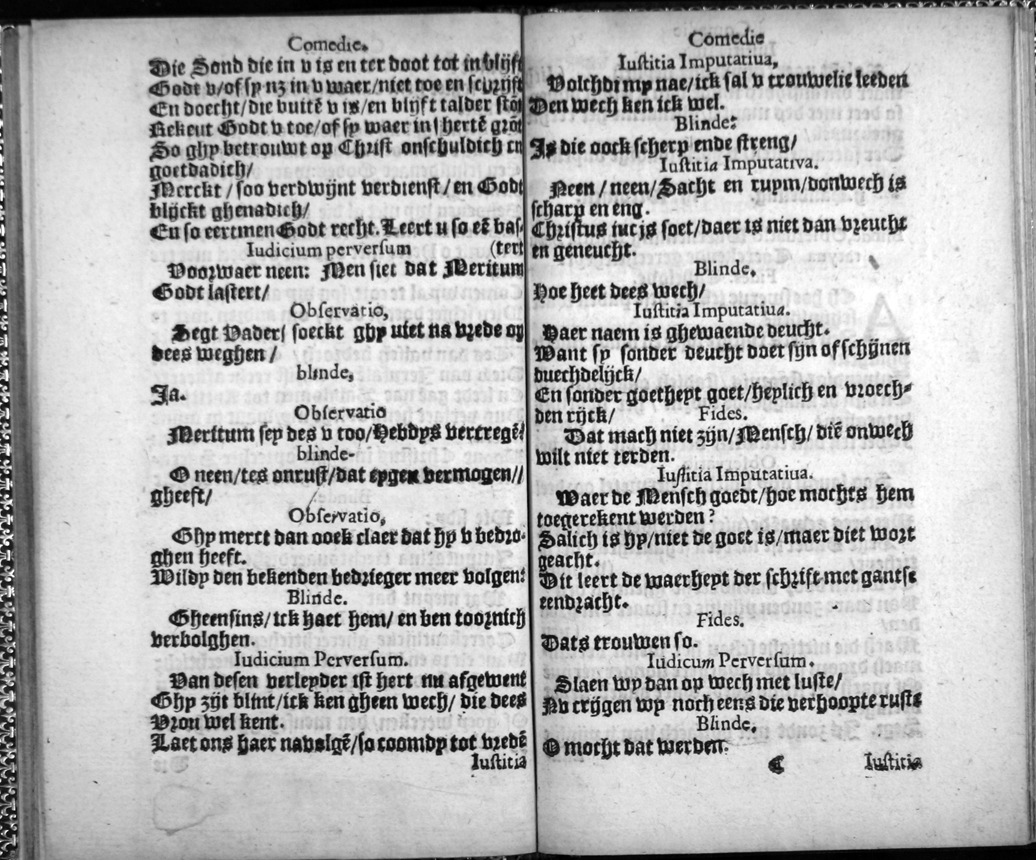 Comedie.
Die Sond die in v is en ter doot tot in blijft
Godt v/of sp nz in v waer/niet toe en schrijft
En doecht/die buitē v is/en blijft talder stōt
Rekent Godt v toe/of sy waer int hertē grōt
So ghy betrouwt op Christ onschuldich en
goetdadich/
Merckt/soo verdwijnt verdienst/en Godt
blijckt ghenadich/
En so eertmen Godt recht. Leert u so eē bas-
Iudicium perversum (tert
Voorwaer neen: Men siet dat Meritum
Godt lastert/
Observatio,
Segt Vader/ soeckt ghy niet na vrede op
dees weghen/
blinde,
Ja.
Observatio
Meritum sey des v too/Hebdys vertregē?
blinde-
O neen/tes onrust/dat eygen vermogen//
gheeft/
Observatio,
Ghy merct dan oock claer dat hy v bedro-
ghen heeft.
Wildy den bekenden bedrieger meer volgen:
Blinde.
Gheensins/ick haet hem/en ben toornich
verbolghen.
Iudicium Perversum.
Van desen verleyder ist hert nu afgewent
Ghy zijt blint/ick ken gheen wech/die dees
Vrou wel kent.
Laet ons haer navolgē/so coomdy tot vredē
Iustitia
Comedie
Iustitia Imputatiua,
Volchdi my nae/ick sal v trouwelic leeden
Den wech ken ick wel.
Blinde:
Is die oock scherp ende streng/
Iustitia Imputativa.
Neen/neen/Sacht en ruym/donwech is
scharp en eng.
Christus iuc is soet/daer is niet dan vreucht
en geneucht.
Blinde,
Hoe heet dees wech/
Iustitia Imputatiua.
Haer naem is ghewaende deucht.
Want sy sonder deucht doet sijn of schijnen
duechdelijck/
En sonder goetheyt goet/heylich en vroech-
den rijck/ Fides.
Dat mach niet zijn/Mensch/diē onwech
wilt niet terden.
Iustitia Imputatiua.
Waer de Mensch goedt/hoe mochts hem
toegerekent werden?
Salich is hy/niet de goet is/maer diet wort
geacht.
Dit leert de waerheyt der schrift met gantse
eendracht.
Fides.
Dats trouwen so.
Iudicum Perversum.
Slaen wy dan op wech met luste/
Nv crijgen wy noch eens die verhoopte ruste
Blinde,
O mocht dat werden.
C Iustitia